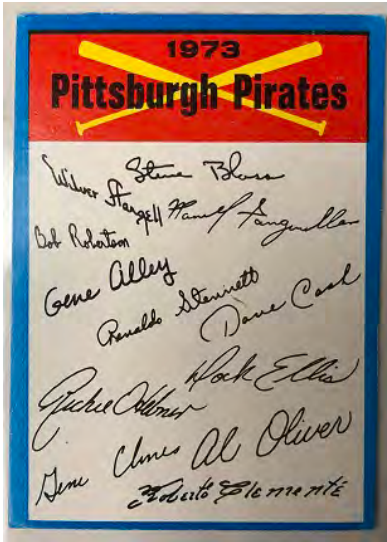 1973
Pittsburgh Pirates
Steve Blass
Wilver Stargell
Manuel Sanguillen
Bob Robertson
Gene Alley
Renaldo Stennett
Dave Cash
Dock Ellis
Richie Hebner
Gene Clines
Al Oliver
Roberto Clemente